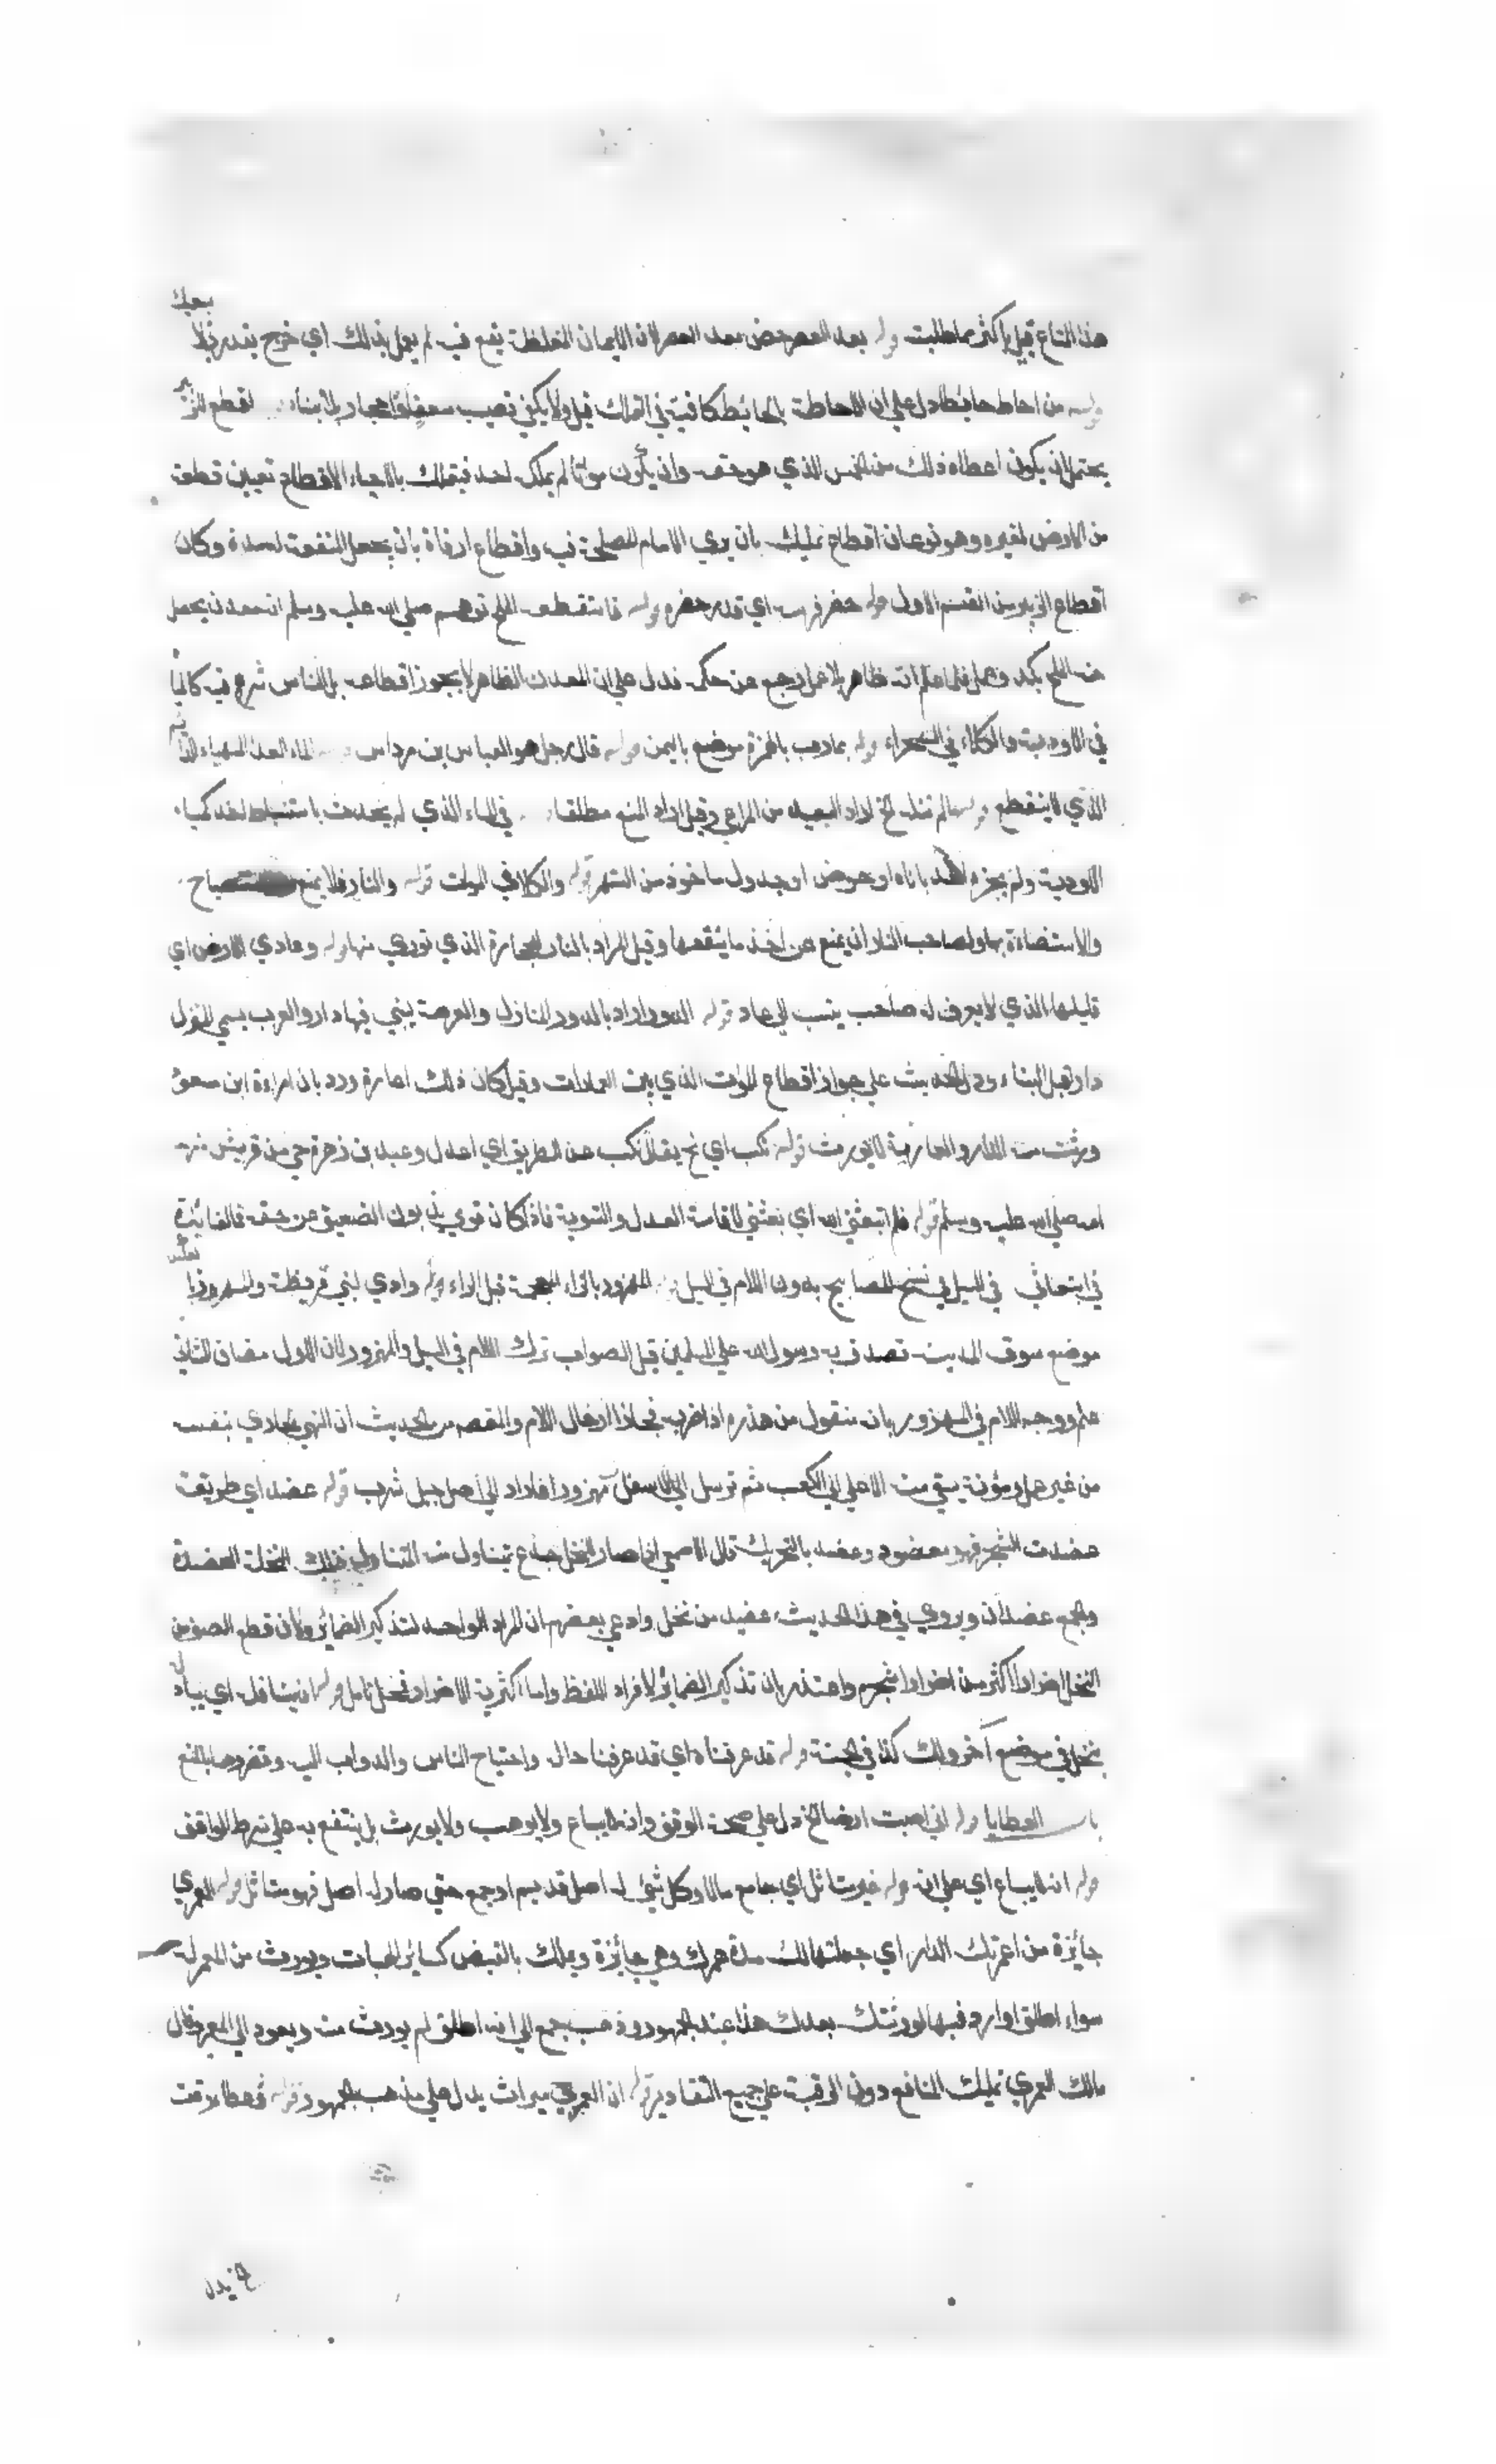 هذا المتاع قبل باكثر مما طلبت قوله بعد العصر خص بعد العصر لان الايمان المغلظة تقع فيه لم يعمل يداك اي خرج بقدرتي لا بعيك
قوله من احاط حائطا دل علي ان الاحاطة بالحائط كافية في التملك قيل ولا يكفي نصب سعف او احجار بلا بناء اقطع للزبير
يحتمل ان يكون اعطاه ذلك من الخمس الذي هو حقه وان يكون مواتا لم يملكه احد فيتملك بالاحياء الاقطاع تعيين قطعة
من الارض لغيره وهو نوعان اقطاع تمليك بان يري الامام المصلحة فيه واقطاع ارفاق بان يجعل المنفعة له مدة وكان
اقطاع الزبير من القسم الاول قوله حضر فرسه اي قدر حضره قوله فاستقطعه الملح توهم صلي الله عليه وسلم انه معدن يحصل
منه الملح بكد وعمل فلما علم انه ظاهر بلا عمل رجع عن حكمه فدل علي ان المعدن الظاهر لا يجوز اقطاعه بل الناس شرع فيه كالماء
في الاودية والكلاء في الصحراء قوله بمارب بالهمزة موضع باليمن قوله قال رجل هو العباس بن مرداس الماء العد المهياء الدائم
الذي لا ينقطع قوله ما لم تنله الخ اراد البعيد من المراعي وقيل اراد المنع مطلقا في الماء الذي لم يحدث باستنباط احد كمياه
الاودية ولم يحزه احد باناء او حوض او جدول ماخوذ من النهر قوله والكلا في الموات قوله والنار فلا يمنع الاستصباح
والاستضاءة بها ولصاحب النار ان يمنع من اخذ ما ينقصها وقيل المراد بالنار الحجارة الذي توري منها قوله وعادي الارض اي
قليلها الذي لا يعرف له صاحب ينسب الي عاد قوله الدور اراد بالدور المنازل والعرصة يبني فيها دار والعرب يسمي المنزل
دار قبل البناء ودل الحديث علي جواز اقطاع الموات الذي بين العمارات وقيل كان ذلك اعارة ورد بان امراءة ابن مسعود
ورثت منه الدار والعارية لا يورث قوله نكب اي نح يقال نكب عن الطريق اي اعدل وعبد بن زهرة حي من قريش منهم
امه صلي الله عليه وسلم قوله فلم ابتعثني الله اي بعثني لاقامة العدل والتسوية فاذا كان قوي يذبون الضعيف عن حقه فالفائدة
في ابتعاثي في السيل في نسخ المصابيح بدون اللام في السيل المهزور بالزاء المعجمة قبل الراء وادي لبني قريظة والمهروز بالعكس
موضع سوق المدينة تصدق به رسول الله علي المسلمين قيل الصواب ترك اللام في السيل والمهزور لان الاول مضاف للثاني
علم ووجه اللام في المهزور بان منقول من هزره اذا ضربه فجاز ادخال اللام والمقصد من الحديث ان النهر الجاري بنفسه
من غير عمل ومؤنة يسقي منه الاعلي الي الكعب ثم ترسل الي الاسفل مهزور افاد اد الي اصل جبل شرب قوله عضد اي طريقة
عضدت الشجر فهو معضود وعضد بالتحريك قال الاصمعي اذا صار للنخل جذع يتناول منه المتناول فتلك النخلة العضدة
والجمع عضدان ويروي في هذا الحديث عضيد من نخل وادعي بعضهم ان المراد الواحد لتذكير الضمائر ولان قطع الصف من
النخل اضرارا اكثر من اضرار اشجره واعتذر بان تذكير الضمائر لافراد اللفظ واما اكثرية الاضرار فمحل تامل قوله ان يناقله اي يبادل
بنخل في موضع آخر ولك كذا في الجنة قوله قد عرفناه اي قد عرفنا حاله واحتياج الناس والدواب اليه وتضررها بالمنع
باب العطايا قوله اني اصبت ارضا الخ دل علي صحة الوقف وانه لا يباع ولا يوهب ولا يورث بل ينتفع به علي شرط الواقف
قوله انه لا يباع اي علي انه قوله غير متاثل اي جامع مالا وكل شيء له اصل قديم او جمع حتي صار له اصل فهو متاثل قوله العمري
جائزة من اعمرتك الدار اي جعلتها لك مدة عمرك وهي جائزة ويملك بالقبض كسائر الهبات ويورث من المعمر له
سواء اطلق او اردفه بها لورثتك بعدك هذا عند الجمهور وذهب جمع الي انه اطلق لم يورث منه ويعود الي المعمر وقال
مالك العمري تمليك المنافع دون الرقبة علي جميع التقادير قوله ان العمري ميراث يدل علي مذهب الجمهور قوله